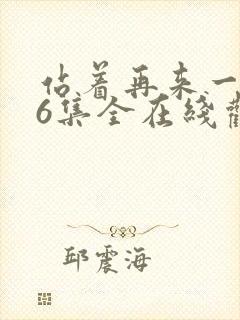 佔着再来一
6集全在线
邱震海